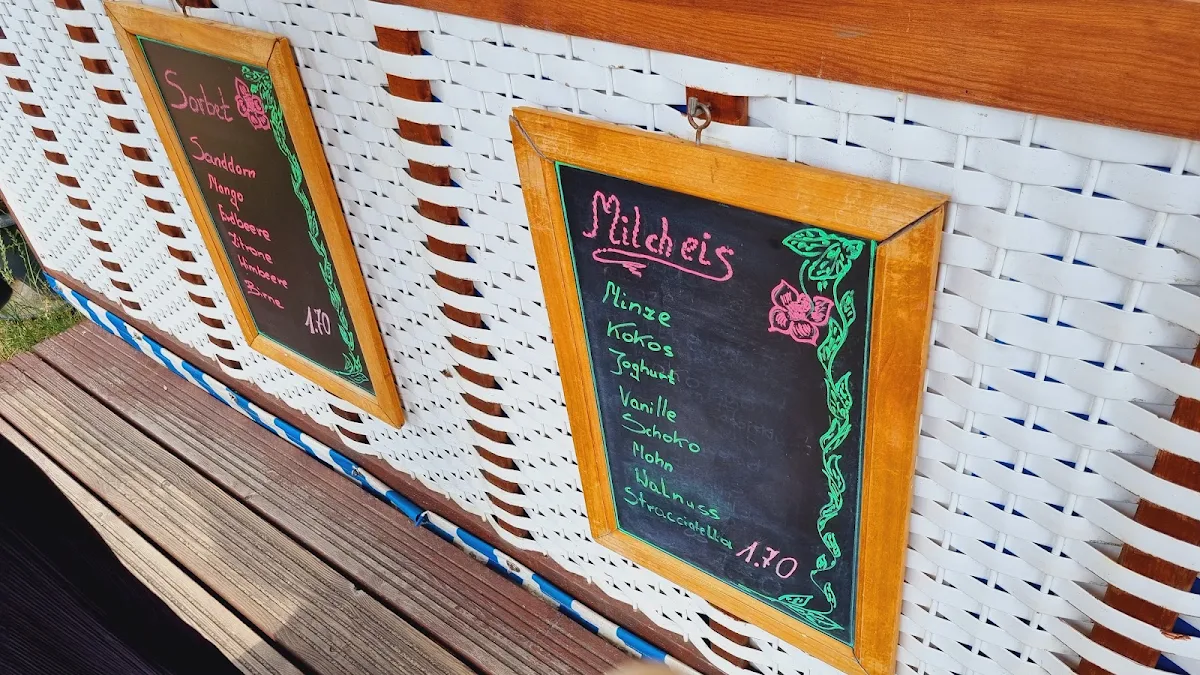 Sorbet
Sanddorn
Mango
Erdbeere
Zitrone
Himbeere
Birne
1.70
Milcheis
Minze
Kokos
Joghurt
Vanille
Schoko
Mohn
Walnuss
Stracciatella
1.70